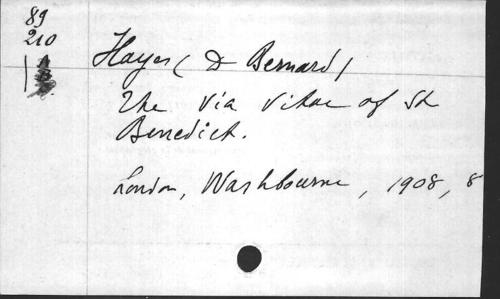 89
210
Hayes ( D Bernard )
The Via Vitae of St
Benedict.
London, Washbourne, 1908, 8